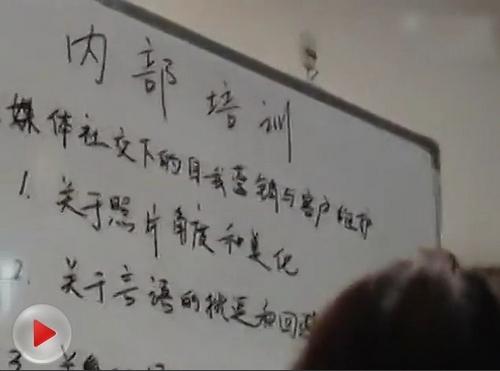 内部培训
媒体社交下的自我营销与客户维护
1. 关于照片角度和美化
2. 关于言语的挑逗和回
3 关